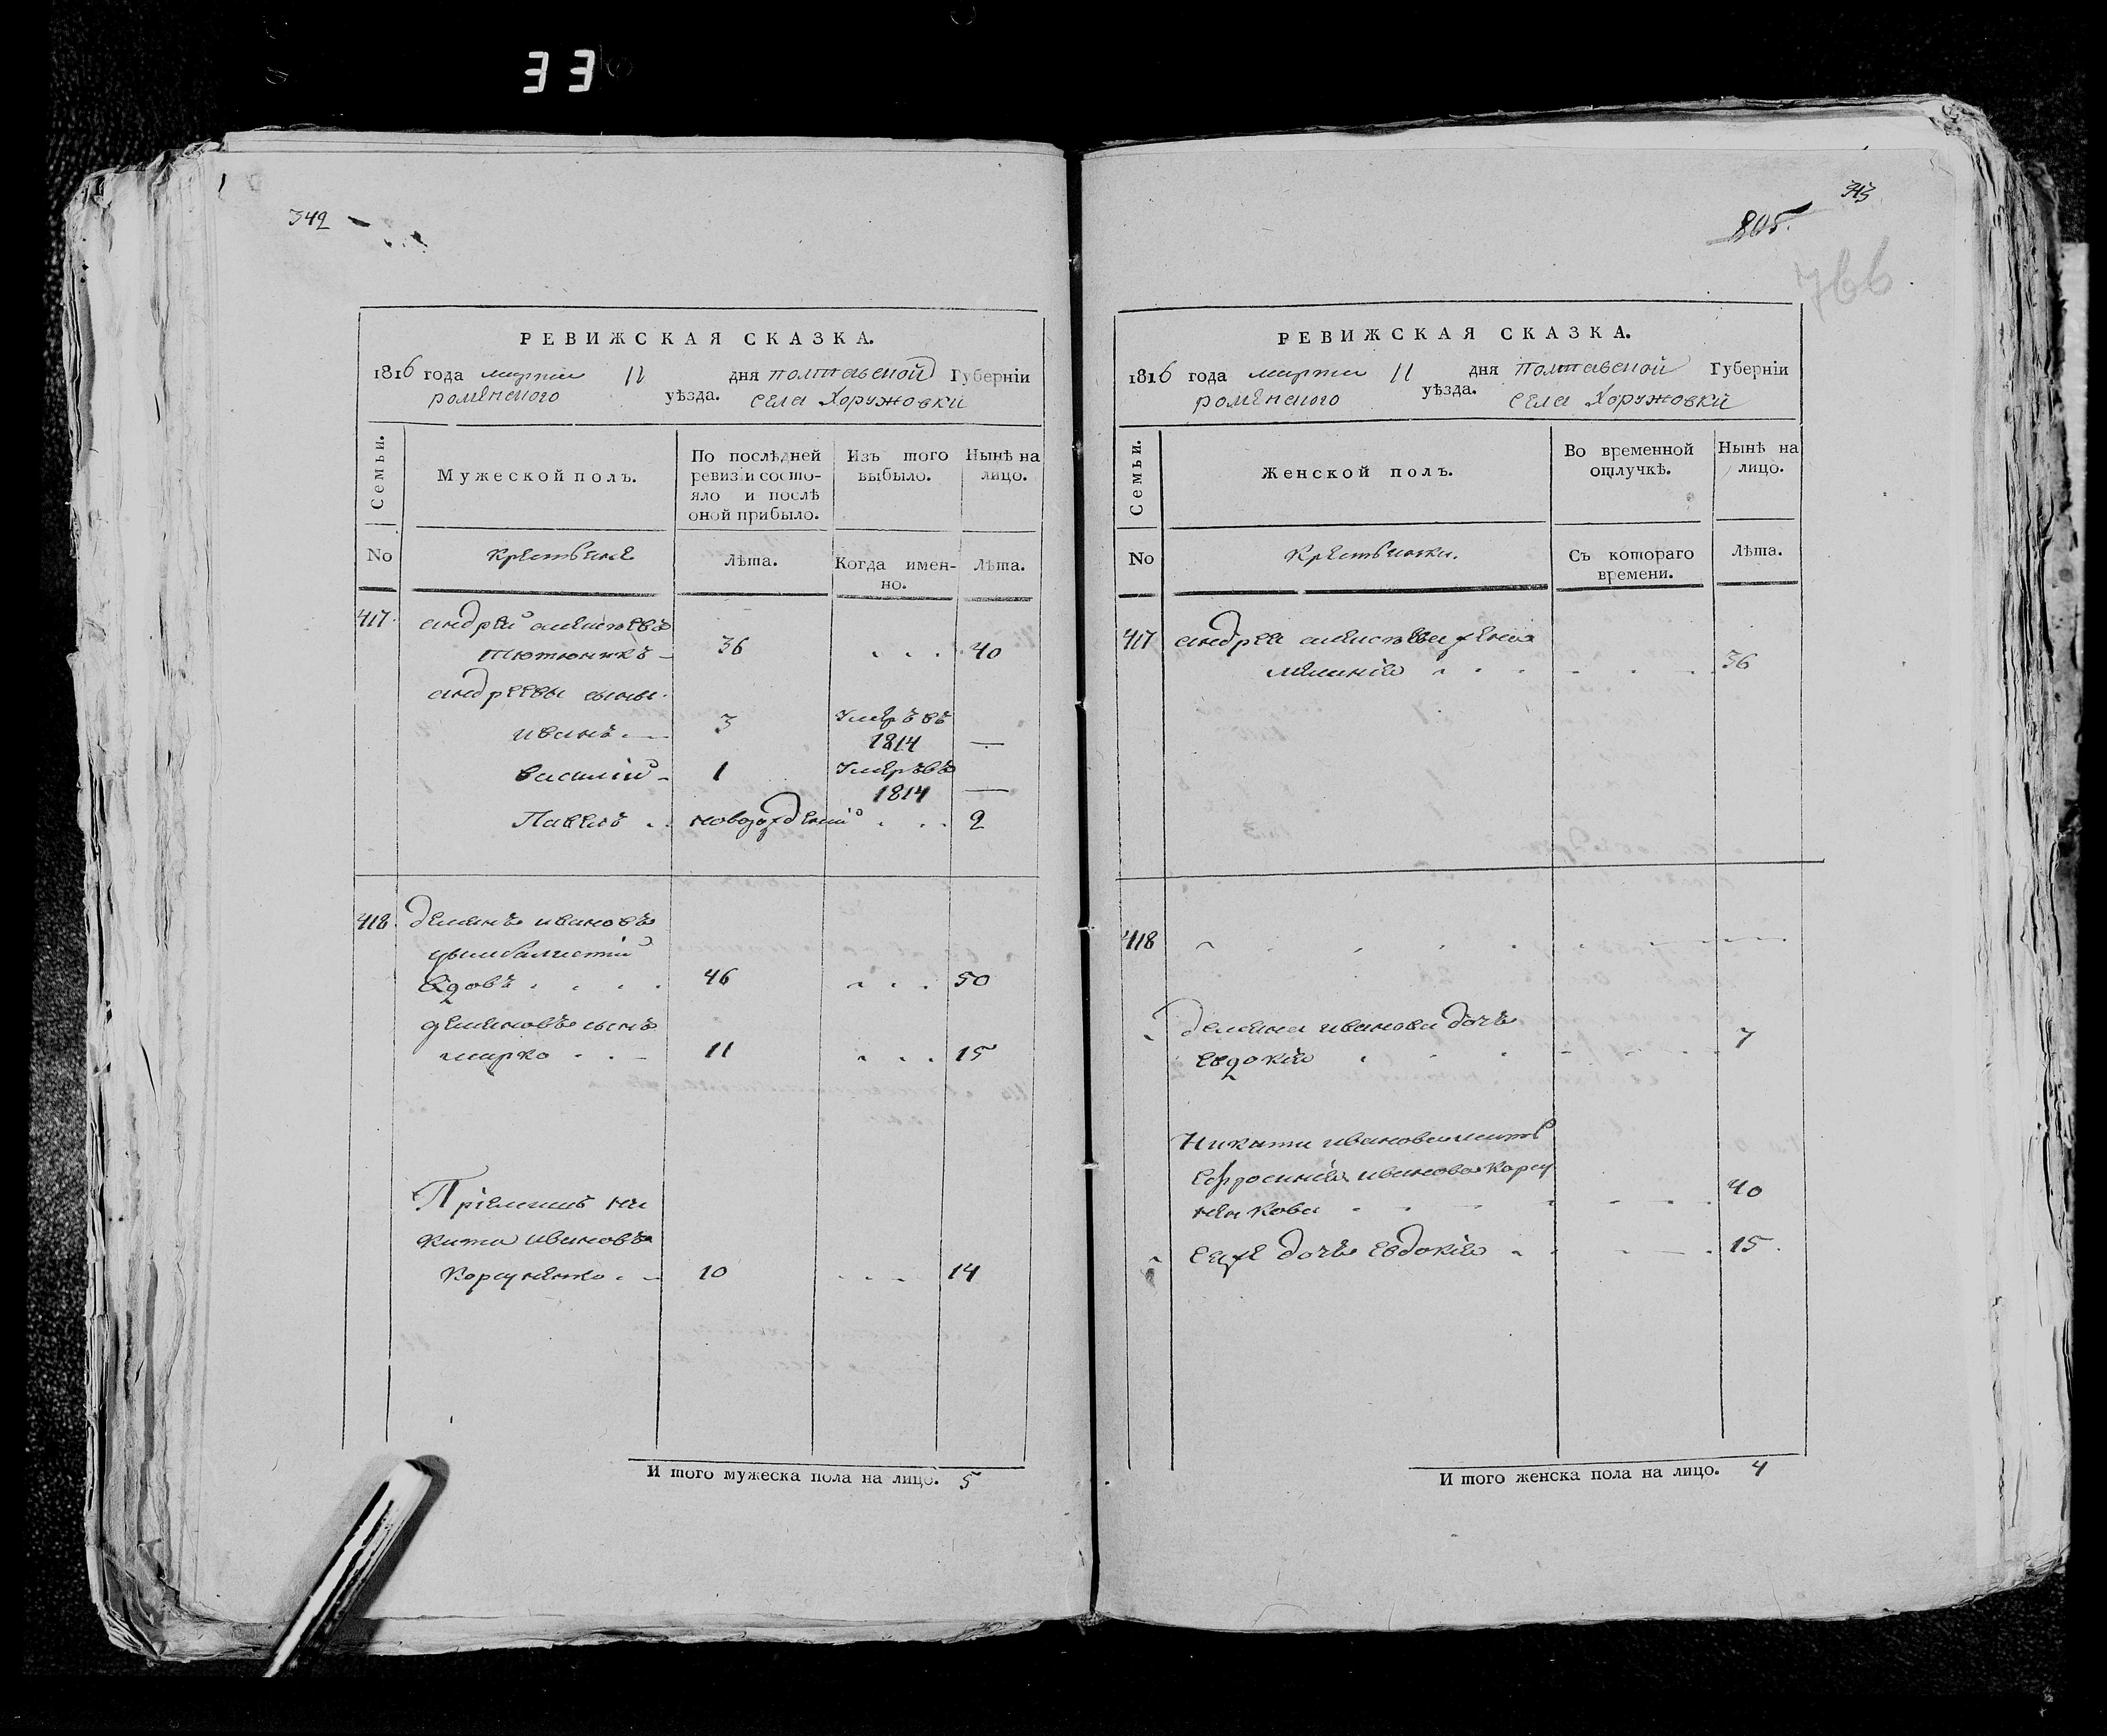 33
342
РЕВИЖСКАЯ СКАЗКА.
1816 года марта 11 дня полтавской Губерніи
роменского уѣзда. села Хоружовки
Семьи.
Мужеской полъ.
По послѣдней ревизіи состояло и послѣ оной прибыло.
Изъ того выбыло.
Нынѣ на лицо.
No
Крестьяне
Лѣта.
Когда именно.
Лѣта.
417. андрей алексѣевъ
Тютюникъ 36 40
андреевы сыны
иванъ 3 Умеръ въ 1814 —
василий 1 Умеръ въ 1814 —
Павелъ новорождений 2
418. демянъ ивановъ
вдовъ 46 50
демяновъ сынъ
марко 11 15
Пріемишъ ни
кита ивановъ
Корсуненко 10 14
И того мужеска пола на лицо. 5
343
805.
766
РЕВИЖСКАЯ СКАЗКА.
1816 года марта 11 дня полтавской Губерніи
роменского уѣзда. села Хоружовки
Семьи.
Женской полъ.
Во временной отлучкѣ.
Нынѣ на лицо.
No
Крестьянки.
Съ котораго времени.
Лѣта.
417 андрея алексѣева жена
меланія 36
418
демяна иванова дочь
евдокія 7
Никити иванова мать
ефросинія иванова корсу
ненкова 40
еяже дочь евдокія 15
И того женска пола на лицо. 4